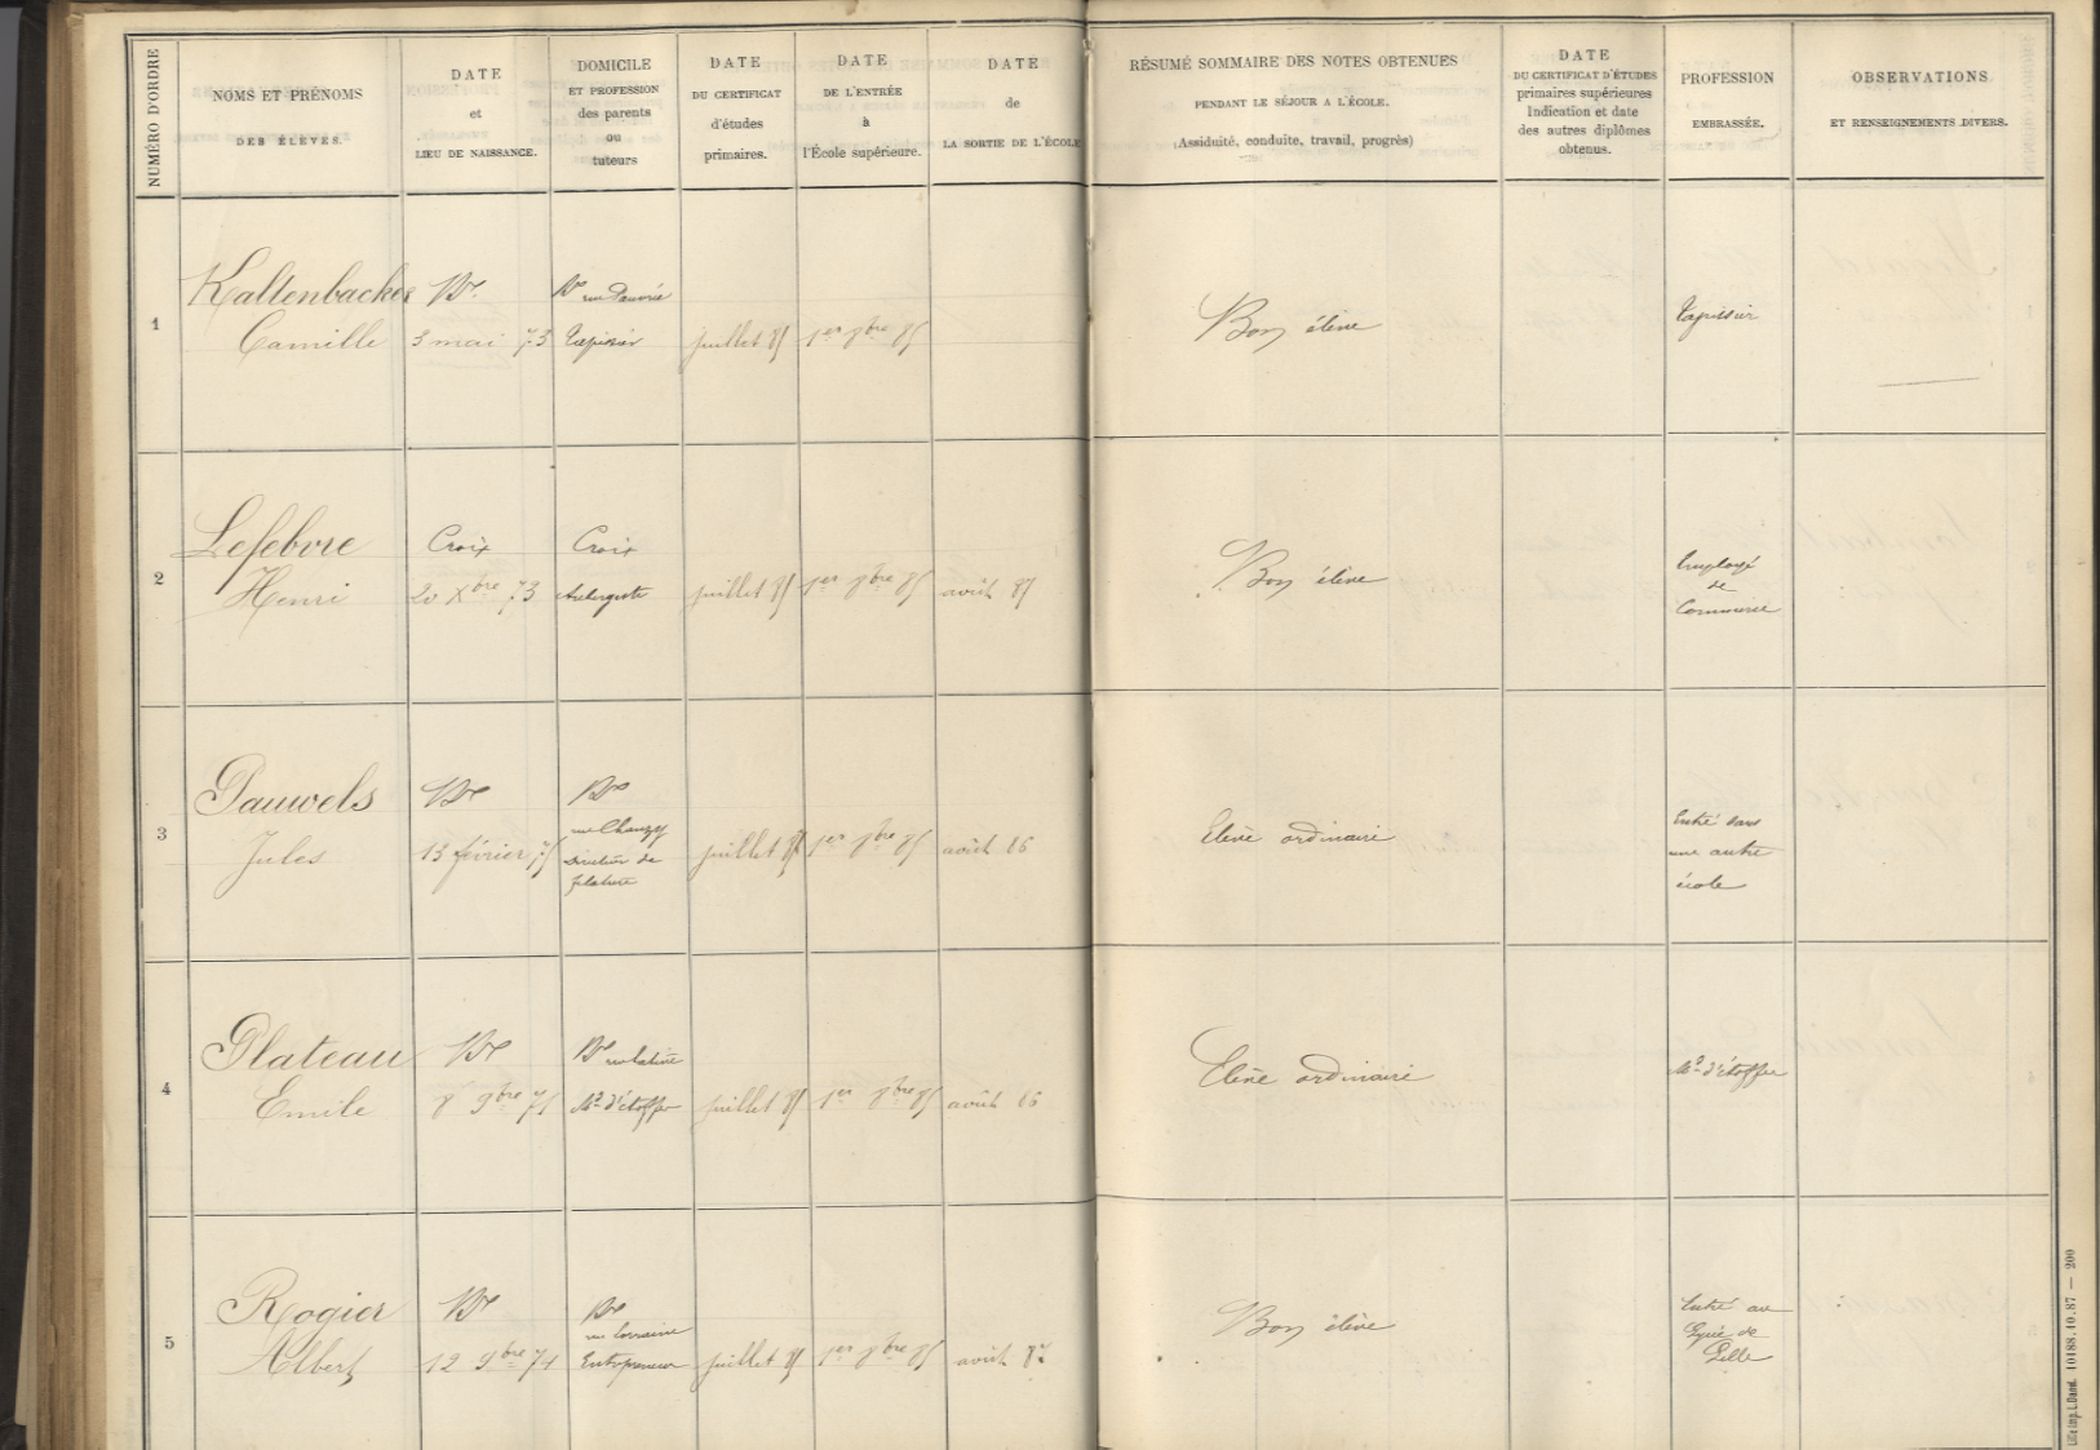 NUMÉRO D'ORDRE
NOMS ET PRÉNOMS
DES ÉLÈVES.
DATE
et
LIEU DE NAISSANCE.
DOMICILE
ET PROFESSION
des parents
ou
tuteurs
DATE
DU CERTIFICAT
d'études
primaires.
DATE
DE L'ENTRÉE
à
l'École supérieure.
DATE
de
LA SORTIE DE L'ÉCOLE
RÉSUMÉ SOMMAIRE DES NOTES OBTENUES
PENDANT LE SÉJOUR A L'ÉCOLE.
(Assiduité, conduite, travail, progrès)
DATE
DU CERTIFICAT D'ÉTUDES
primaires supérieures
Indication et date
des autres diplômes
obtenus.
PROFESSION
EMBRASSÉE.
OBSERVATIONS
ET RENSEIGNEMENTS DIVERS.
1
Kaltenbacker
Camille
Rx
3 mai 73
Rx rue
Tapissier
juillet 85
1er 8bre 85
Bon élève
Tapissier
2
Lefebvre
Henri
Croix
20 Xbre 73
Croix
Aubergiste
juillet 85
1er 8bre 85
août 85
Bon élève
Employé
de
Commerce
3
Pauwels
Jules
Rx
13 février 75
Rx
rue Chanzy
Directeur de
filature
juillet 85
1er 8bre 85
août 86
Elève ordinaire
Entré dans
une autre
école
4
Plateau
Emile
Rx
8 9bre 75
Rx rue
Md d'étoffes
juillet 85
1er 8bre 85
août 86
Elève ordinaire
Md d'étoffes
5
Rogier
Albert
Rx
12 9bre 74
Rx
rue Lorraine
Entrepreneur
juillet 85
1er 8bre 85
août 87
Bon élève
Entré au
Lycée de
Lille
Lille Imp. L. Danel. 10188.10.87 — 200